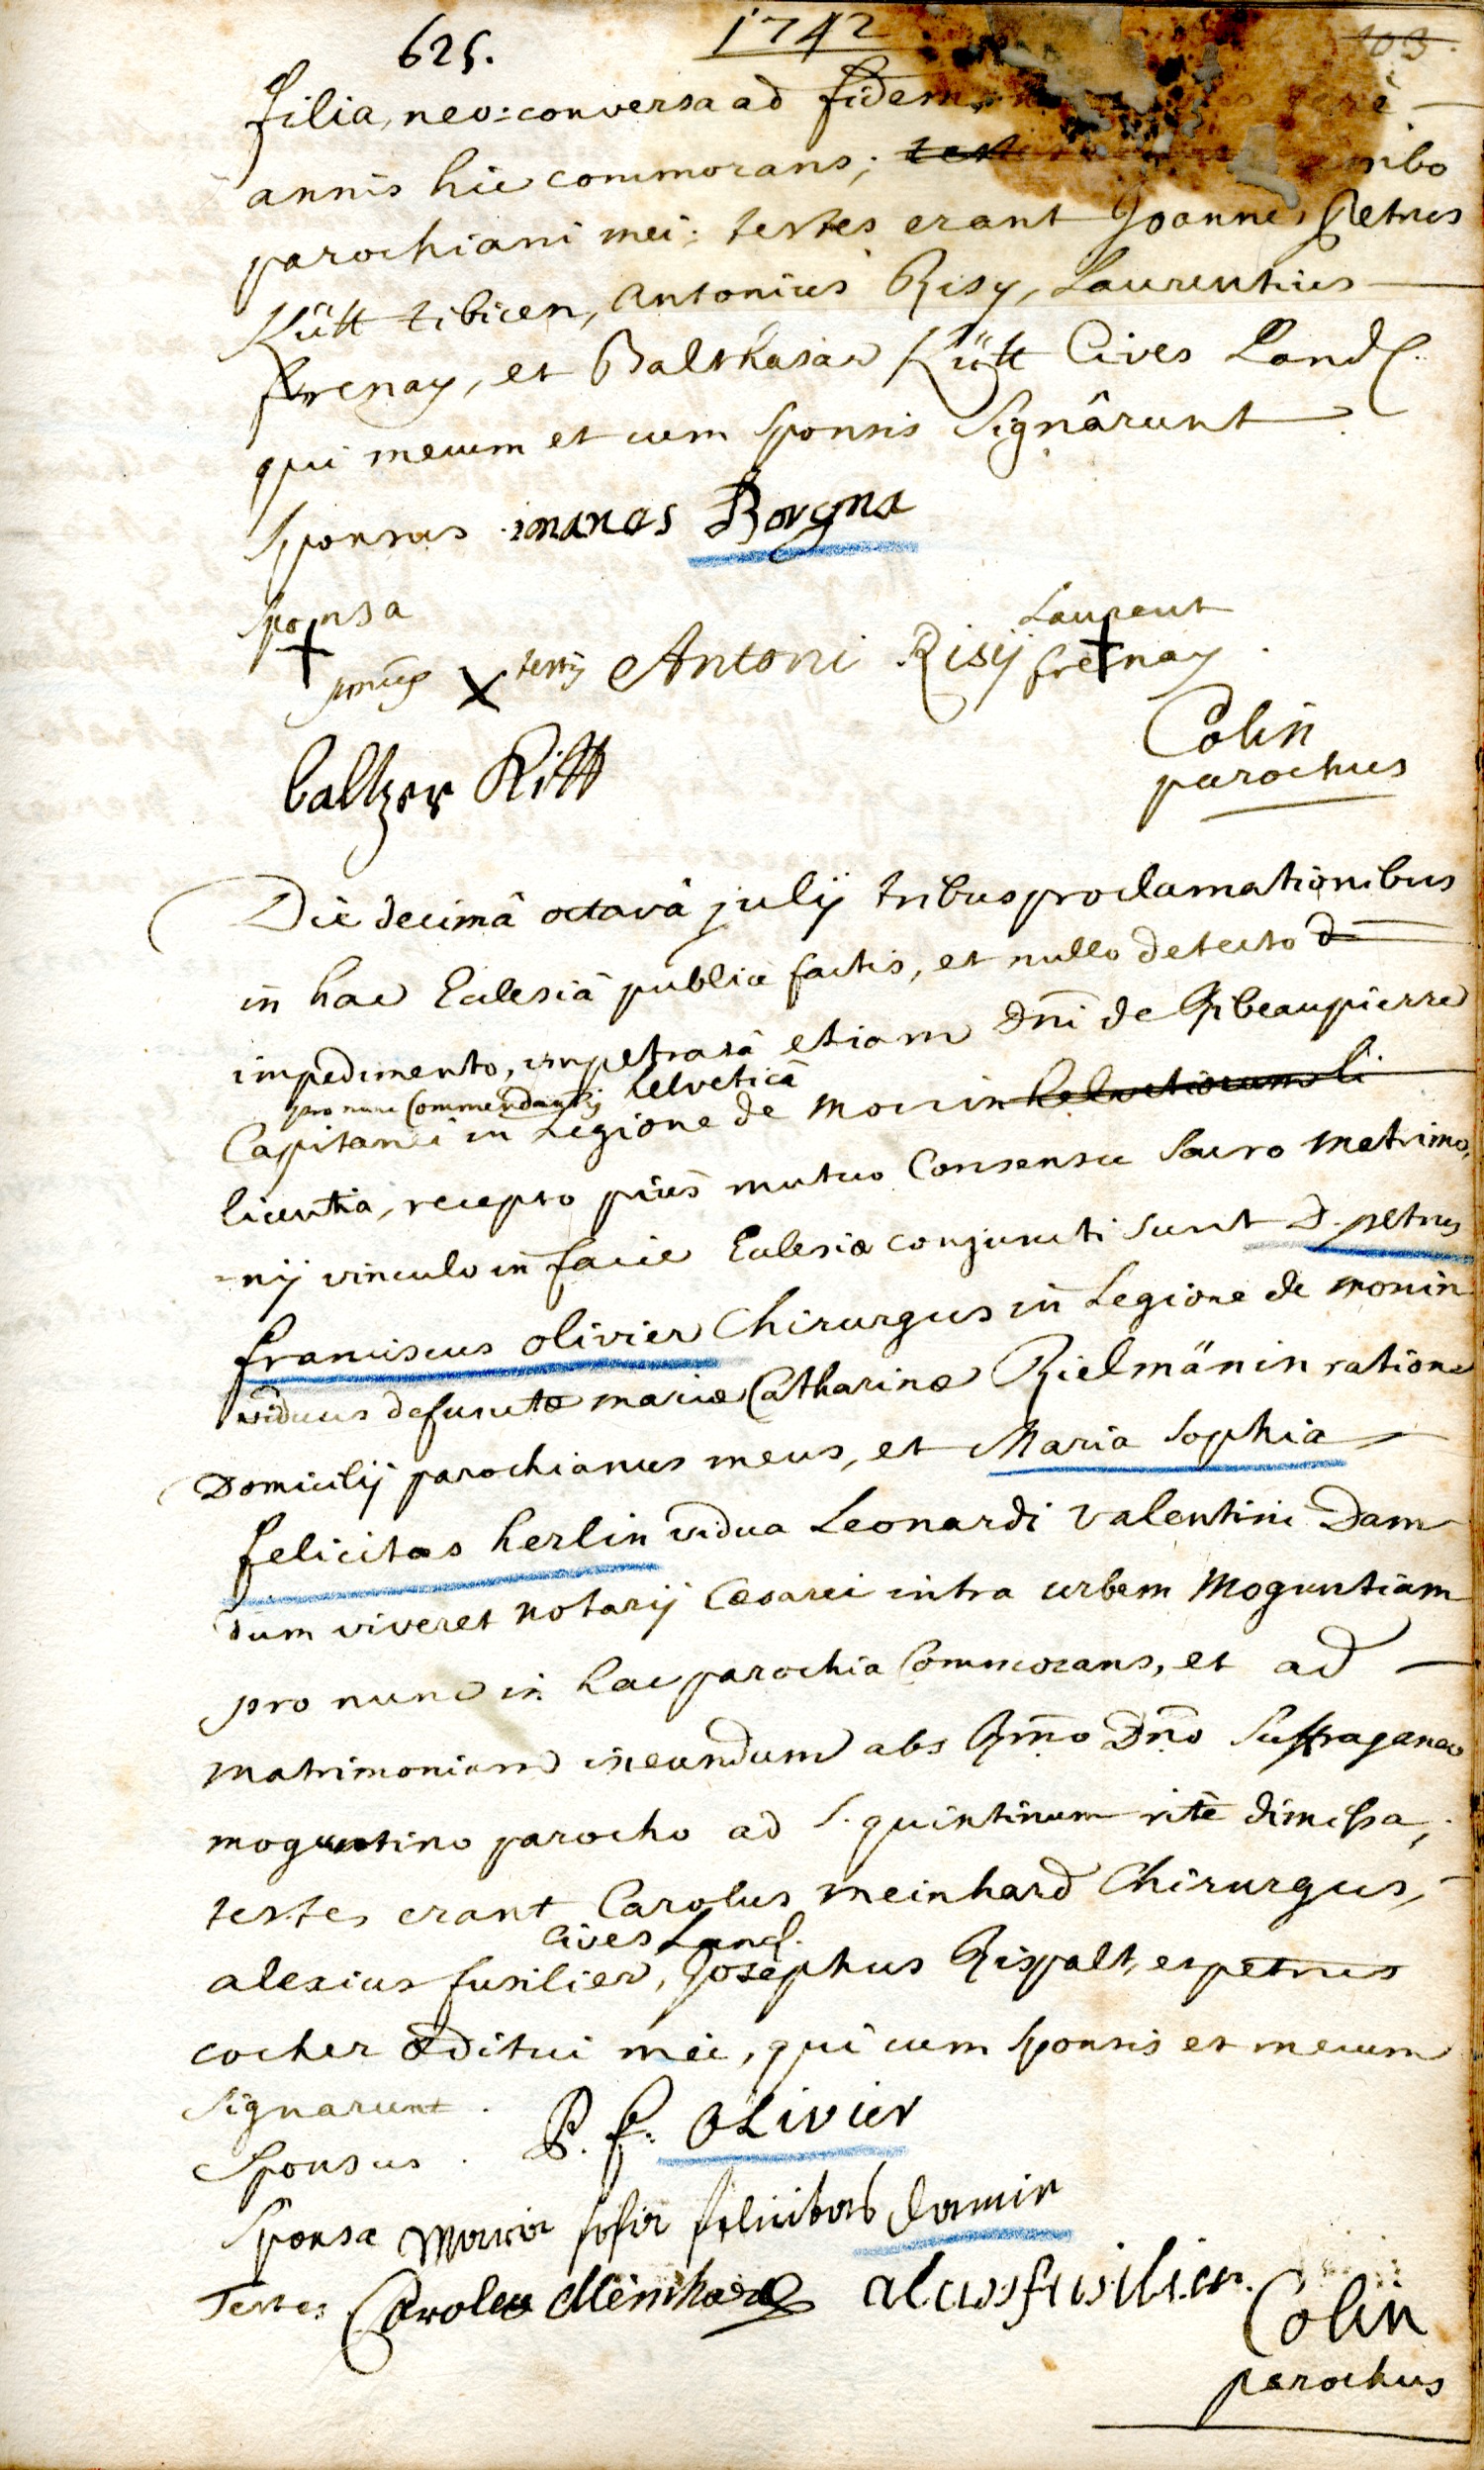 625.
1742
103.
filia, neo-conversa ad fidem
annis hic commorans;
parochiani mei; testes erant Joannes Petrus
Kütt tibicen, Antonius Risy, Laurentius
frenay, et Balthasar Kütt Cives Land:
qui mecum et cum sponsis signârunt
Sponsus Borgna
Sponsa
testis Antoni Risÿ Laurent
frenay.
baltzer Kitt
Colin
parochus
Die decimâ octavâ julÿ tribus proclamationibus
in hac Eclesiâ publicè factis, et nullo detecto d
impedimento, impetratâ etiam Dni de Ribeaupierre
pro nunc Commendantis helveticâ
Capitanei in Legione de monin
licentia, recepto priùs mutuo Consensu sacro matrimo,
=nÿ vinculo in facie Eclesiæ conjuncti sunt D. petrus
franciscus olivier Chirurgus in Legione de monin
viduus defunctæ mariæ Catharinæ Rielmänin ratione
Domicilÿ parochianus meus, et Maria Sophia
felicitas herlin vidua Leonardi valentini Dam
dum viveret notarÿ Cæsarei intra urbem Moguntiam
pro nunc in hac parochia Commorans, et ad
matrimonium ineundum abs Rmo Dno Suffraganeo
moguntino parocho ad S. quintinum ritè dimissa,
testes erant Carolus meinhard Chirurgus,
cives Land.
alexius fusilier, Josephus Rispalt, et petrus
cocher æditui mei, qui cum sponsis et mecum
signarunt.
Sponsus. P. f. OLivier
Sponsa Maria sofia felicitas Damin
Testes Carolus Meinhard fusilier.
Colin
parochus